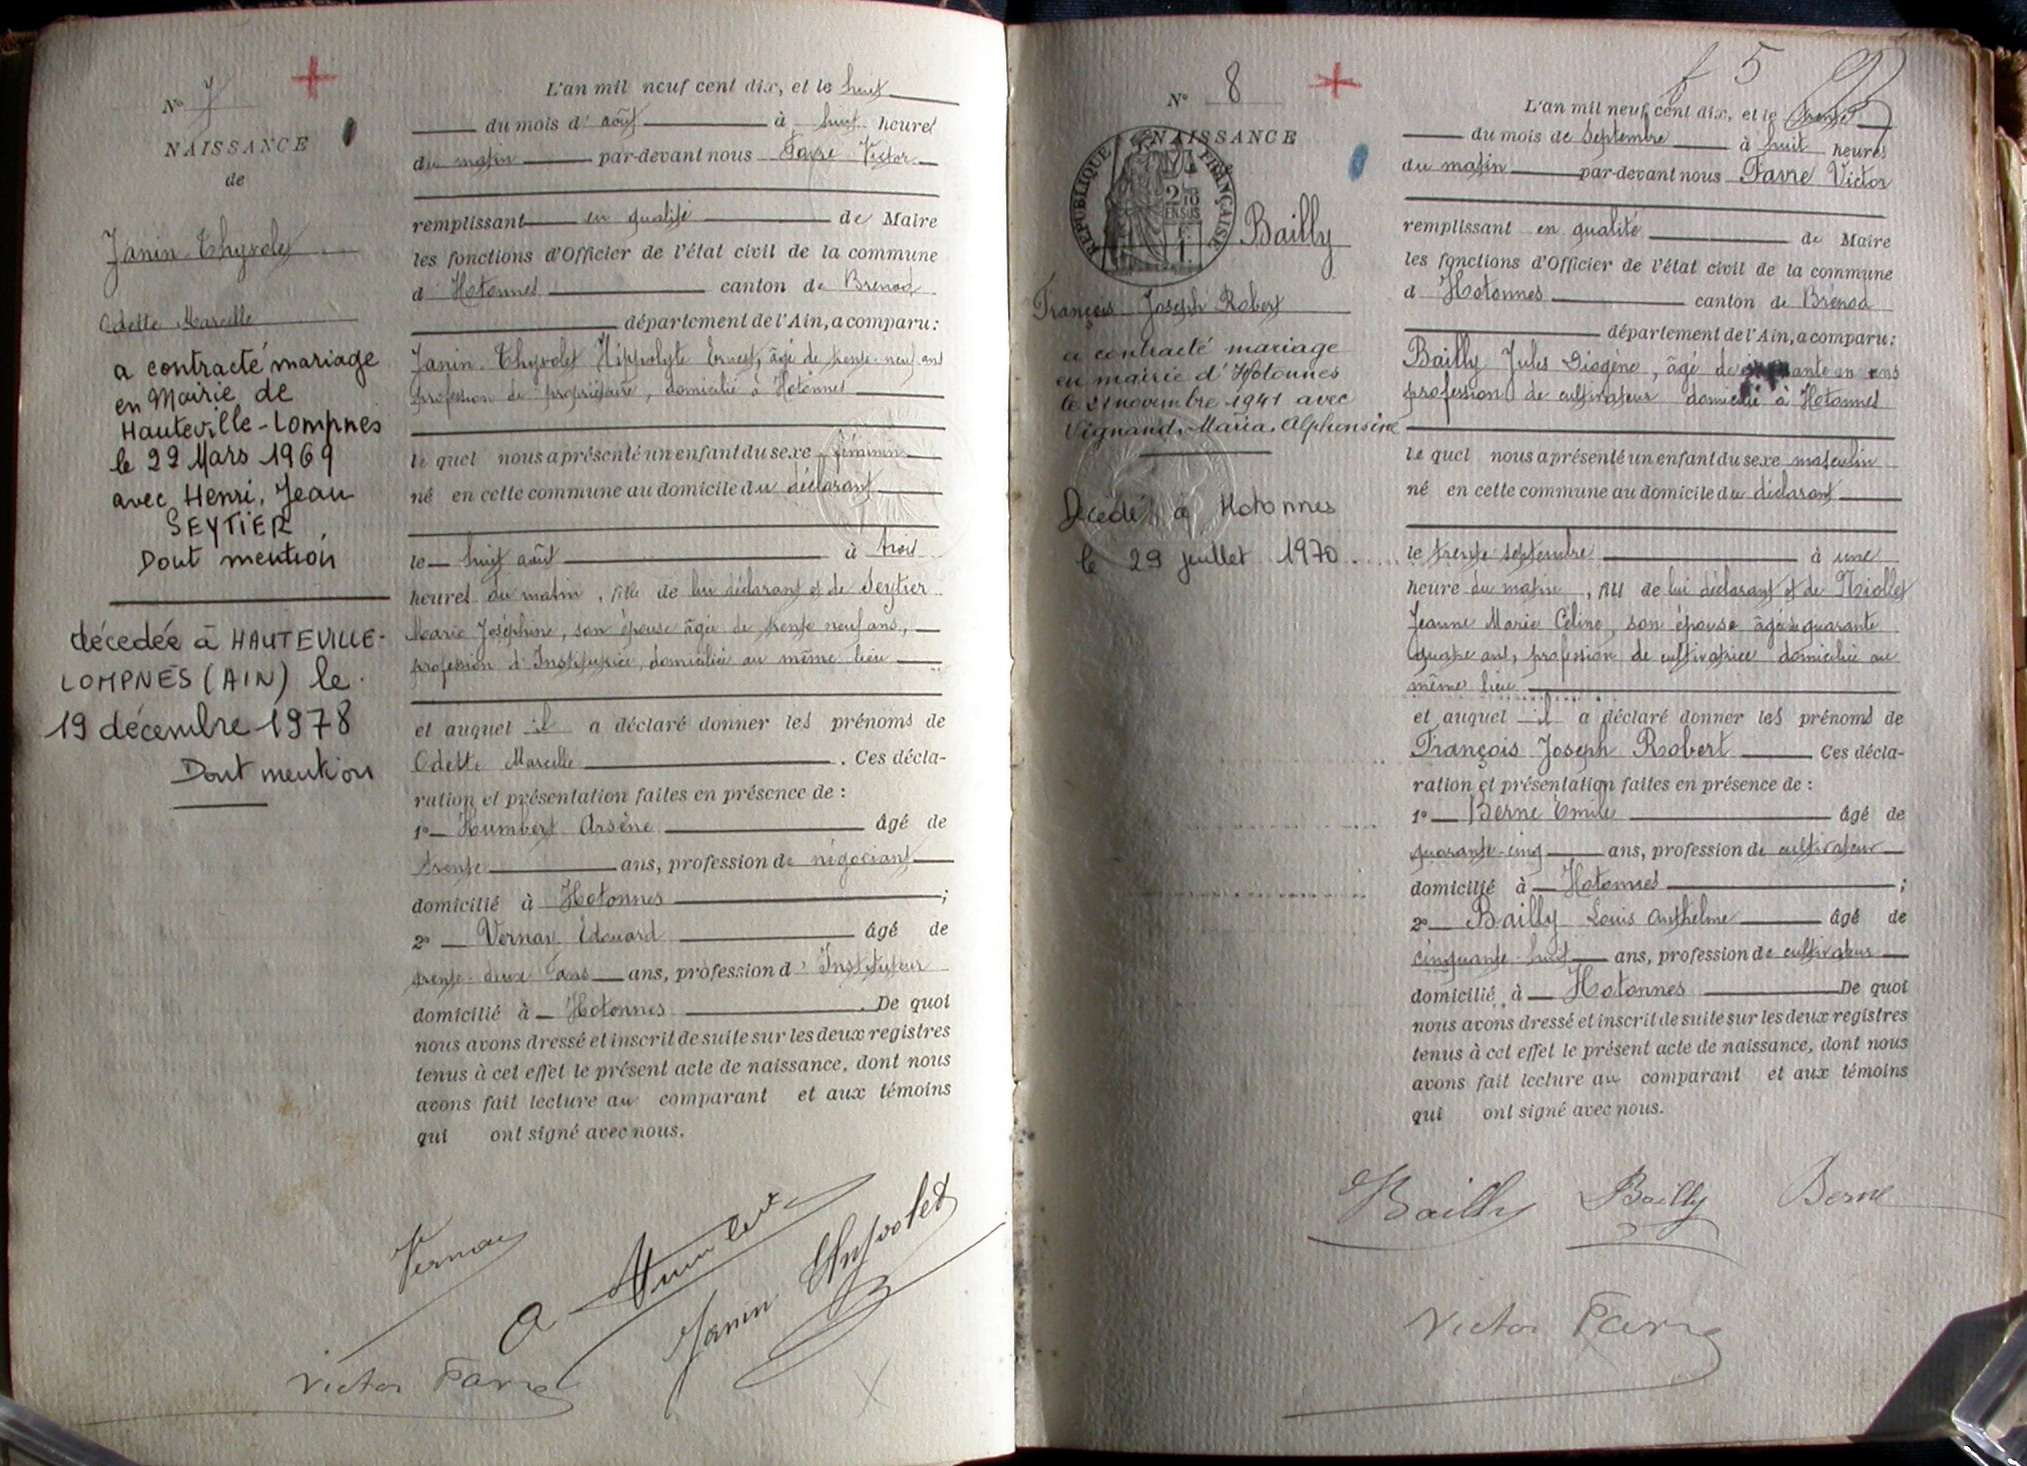 N° 7
NAISSANCE
de
Janin-Thyvolet
Odette Marcelle
a contracté mariage
en Mairie de
Hauteville-Lompnes
le 22 Mars 1969
avec Henri, Jean
SEYTIER
Dont mention
décedée à HAUTEVILLE-
LOMPNES (AIN) le
19 décembre 1978
Dont mention
L'an mil neuf cent dix, et le huit
du mois d'août à huit heures
du matin par-devant nous Favre Victor
remplissant en qualité de Maire
les fonctions d'Officier de l'état civil de la commune
d'Hotonnes canton de Brenod
département de l'Ain, a comparu:
Janin-Thyvolet Hippolyte Ernest, âgé de trente-neuf ans
profession de propriétaire, domicilié à Hotonnes
le quel nous a présenté un enfant du sexe féminin
né en cette commune au domicile du déclarant
le huit août à trois
heures du matin, fille de lui déclarant et de Seytier
Marie Joséphine, son épouse âgée de trente neuf ans,
profession d'Institutrice, domiciliée au même lieu
et auquel il a déclaré donner les prénoms de
Odette Marcelle . Ces décla-
ration et présentation faites en présence de :
1° Humbert Arsène âgé de
trente ans, profession de négociant
domicilié à Hotonnes ;
2° Vernay Edouard âgé de
trente-deux ans ans, profession d'Instituteur
domicilié à Hotonnes . De quoi
nous avons dressé et inscrit de suite sur les deux registres
tenus à cet effet le présent acte de naissance, dont nous
avons fait lecture au comparant et aux témoins
qui ont signé avec nous.
Vernay
A Humbert
Janin Thyvolet
Victor Favre
f 5
N° 8
NAISSANCE
RÉPUBLIQUE FRANÇAISE
Bailly
François Joseph Robert
a contracté mariage
en mairie d'Hotonnes
le 21 novembre 1941 avec
Vignand, Maria, Alphonsine
Décédé à Hotonnes
le 29 juillet 1970
L'an mil neuf cent dix, et le trente
du mois de Septembre à huit heures
du matin par-devant nous Favre Victor
remplissant en qualité de Maire
les fonctions d'Officier de l'état civil de la commune
d'Hotonnes canton de Brénod
département de l'Ain, a comparu:
Bailly Jules Diogène, âgé de ans
profession de cultivateur domicilié à Hotonnes
le quel nous a présenté un enfant du sexe masculin
né en cette commune au domicile du déclarant
le trente septembre à une
heure du matin, fils de lui déclarant et de Niollet
Jeanne Marie Céline, son épouse âgée de quarante
quatre ans, profession de cultivatrice domiciliée au
même lieu
et auquel il a déclaré donner les prénoms de
François Joseph Robert Ces décla-
ration et présentation faites en présence de :
1° Berne Emile âgé de
quarante-cinq ans, profession de cultivateur
domicilié à Hotonnes ;
2° Bailly Louis Anthelme âgé de
cinquante-huit ans, profession de cultivateur
domicilié à Hotonnes De quoi
nous avons dressé et inscrit de suite sur les deux registres
tenus à cet effet le présent acte de naissance, dont nous
avons fait lecture au comparant et aux témoins
qui ont signé avec nous.
Bailly Bailly Berne
Victor Favre